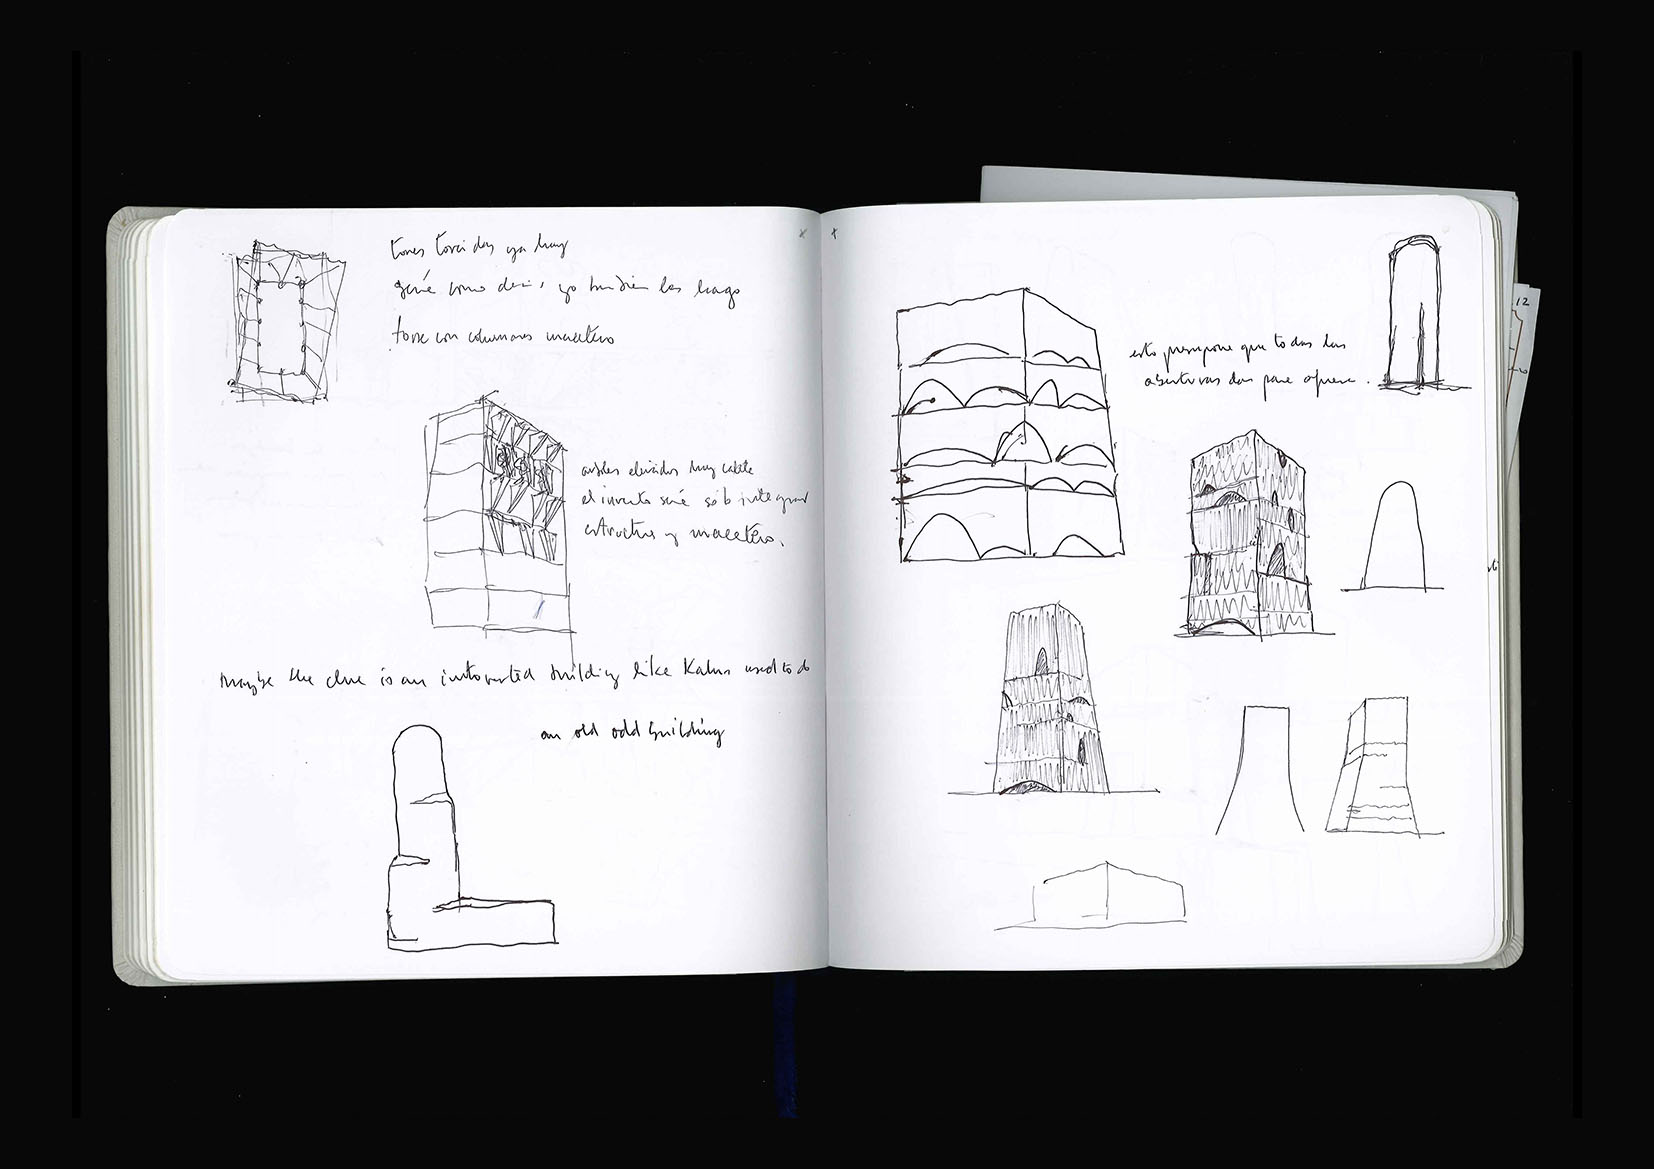 torres torcidas ya hay
seré como dec ' yo también las hago
torre con columnas macetero
árboles elevados hay
el invento será sólo integrar
estructura y macetero.
maybe the clue is an introverted building like Kahn used to do
an old odd building
esto presupone que todas las
aberturas dan para afuera.
12